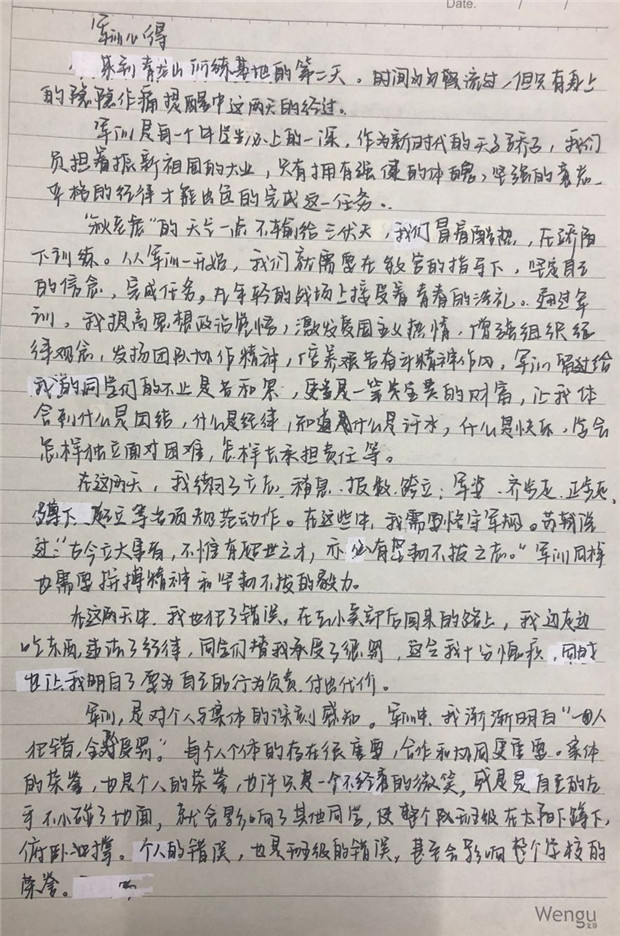 Date. / /
军训心得
来到青龙山训练基地的第二天。时间匆匆飘流过,但只有身上
的隐隐作痛提醒中这两天的经过。
军训是每一个中学生必上的一课,作为新时代的天之骄子,我们
负担着振新祖国的大业,只有拥有强健的体魄,坚强的意志
严格的纪律才能出色的完成这一任务。
"秋老虎"的天气一点不输给三伏天,我们冒着酷热,在骄阳
下训练。从军训一开始,我们就需要在教官的指导下,坚定自己
的信念,完成任务。在年轻的战场上接受着青春的洗礼。通过军
训,我提高思想政治觉悟,激发爱国主义热情,增强组织纪
律观念,发扬团队协作精神,培养艰苦奋斗精神作风,军训留过给
我的同学们的不止是苦和累,更是一笔宝贵的财富,让我体
会到什么是团结,什么是纪律,知道什么是汗水,什么是快乐,学会
怎样独立面对困难,怎样去承担责任等。
在这两天,我练习了立正、稍息、报数、跨立、军姿、齐步走、正步走、
蹲下、起立等各项规范动作。在这些中,我需要恪守军规。苏轼说
过:"古今立大事者,不惟有超世之才,亦必有坚韧不拔之志。"军训同样
也需要拼搏精神和坚韧不拔的毅力。
在这两天中,我也犯了错误。在去小卖部后回来的路上,我边走边
吃东西违法了纪律,同学们替我承受了惩罚,这令我十分愧疚,同时
也让我明白了要为自己的行为负责,付出代价。
军训,是对个人与集体的深刻感知。军训中,我渐渐明白"一人
犯错,全员受罚"。每个人个体的存在很重要,合作和协同更重要。集体
的荣誉,也是个人的荣誉,也许只是一个不经意的微笑,或是是自己的左
手不小碰了地面,就会影响了其他同学,使整个队班级在太阳下蹲下,
俯卧地撑。个人的错误,也是班级的错误,甚至会影响整个学校的
荣誉。
Wengu
文谷